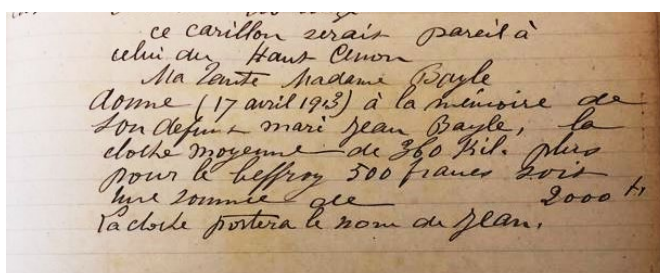 ce carillon serait pareil à
celui du Haut Cenon
Ma Tante Madame Bayle
donne (17 avril 1913) à la mémoire de
son defunt mari Jean Bayle, la
cloche moyenne de 360 Kil. plus
pour le beffroy 500 francs soit
une somme de 2000 fr
La cloche portera le nom de Jean.